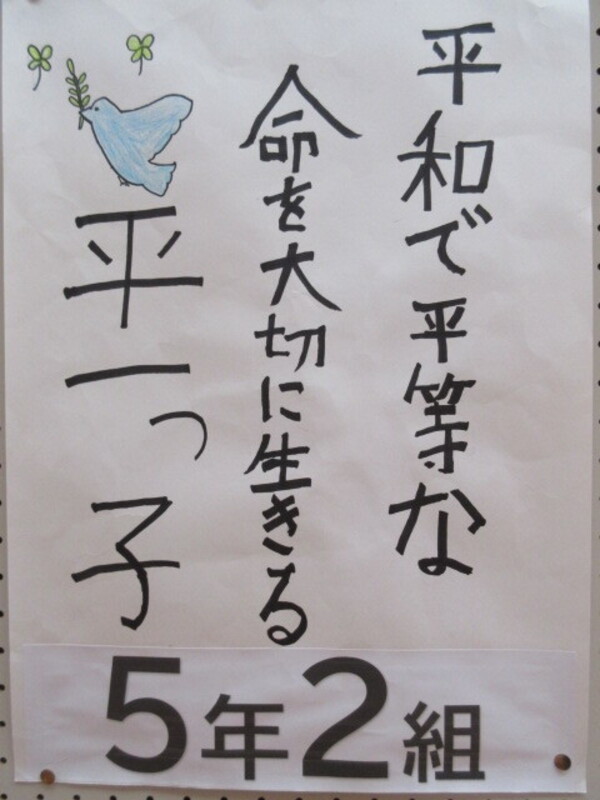 平和で平等な
命を大切に生きる
平一っ子
5年2組